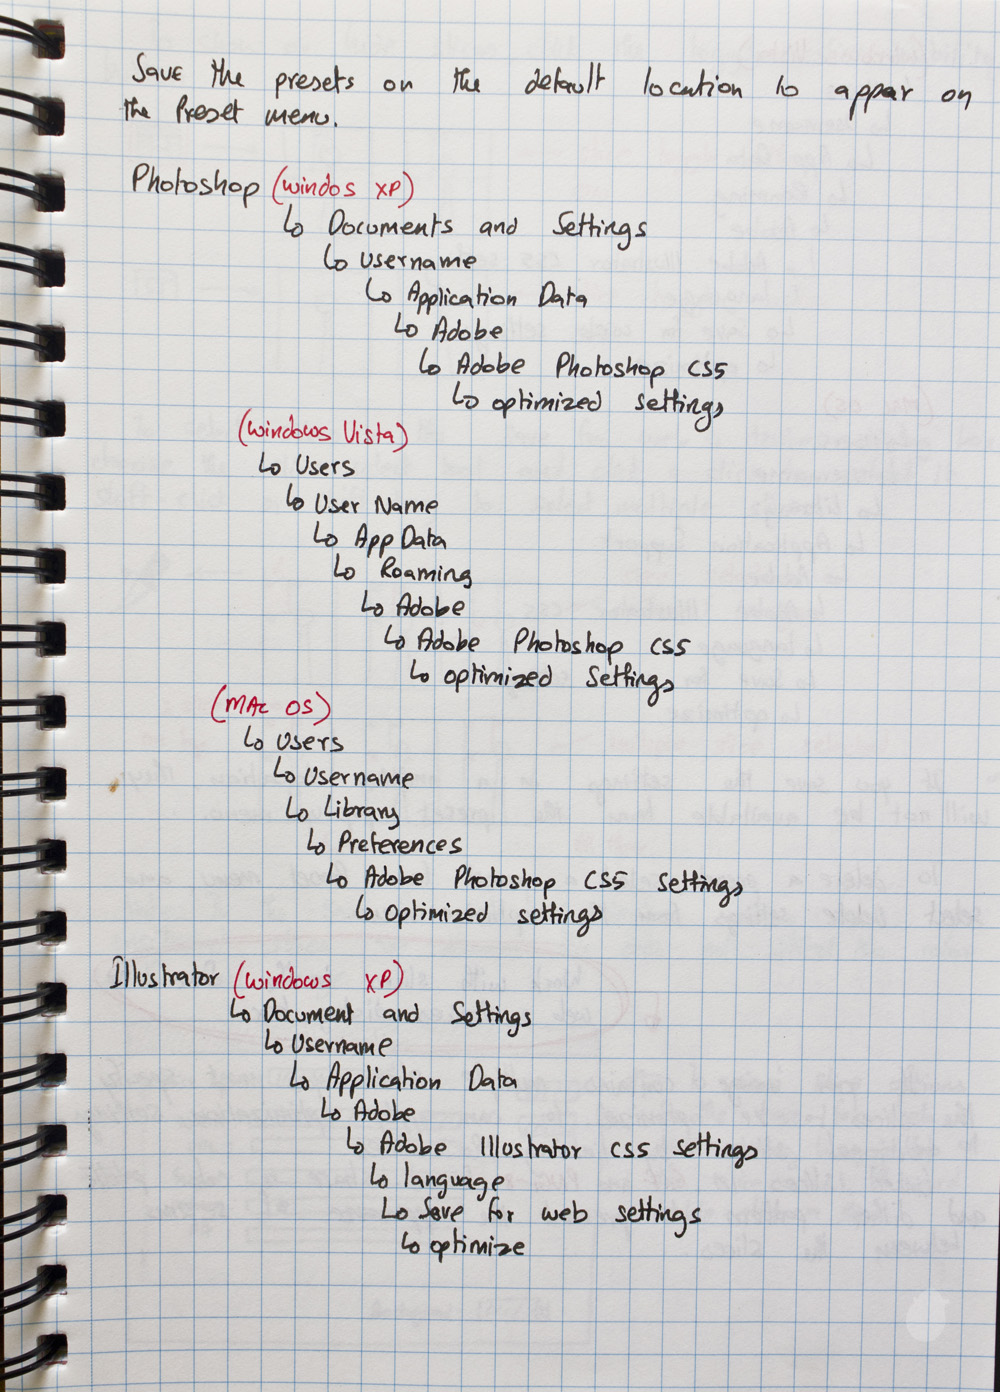 Save the presets on the default location to appear on
the Preset menu.
Photoshop (windos XP)
↳ Documents and Settings
↳ Username
↳ Application Data
↳ Adobe
↳ Adobe Photoshop CS5
↳ optimized settings
(windows Vista)
↳ Users
↳ User Name
↳ App Data
↳ Roaming
↳ Adobe
↳ Adobe Photoshop CS5
↳ optimized Settings
(MAC OS)
↳ Users
↳ Username
↳ Library
↳ Preferences
↳ Adobe Photoshop CS5 settings
↳ optimized settings
Illustrator (windows XP)
↳ Document and Settings
↳ Username
↳ Application Data
↳ Adobe
↳ Adobe Illustrator CS5 settings
↳ language
↳ Save for web settings
↳ optimize